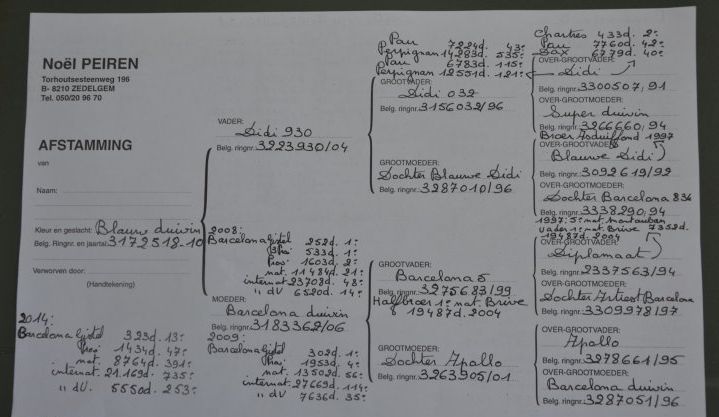 Noël PEIREN
Torhoutsesteenweg 196
B- 8210 ZEDELGEM
Tel. 050/20 96 70
AFSTAMMING
van
Naam:
Kleur en geslacht: Blauwe duivin
Belg. Ringnr. en jaartal: 3172518-10
Verworven door:
(Handtekening)
2014:
Barcelona Gistel 323d. 13e
Prov 1434d. 47e
nat. 8764d. 391e
internat. 21.169d. 735e
" dV. 5550d. 253e
VADER:
Sidi 930
Belg. ringnr. 3223930/04
2008:
Barcelona Gistel 252d. 1e
533d. 1e
Prov 1603d. 2e
nat. 11484d. 21e
internat 23708d. 48e
" dV 6520d. 14e
MOEDER:
Barcelona duivin
Belg. ringnr. 3183362/06
2009:
Barcelona Gistel 302d. 1e
1953d. 4e
nat. 13502d. 56e
internat. 27669d. 114e
" dV 7636d. 35e
Pau 7224d. 43e
Perpignan 14283d. 535e
Pau 6783d. 115e
Perpignan 12551d. 121e
GROOTVADER:
Sidi 032
Belg. ringnr. 3156032/96
GROOTMOEDER:
Dochter Blauwe Sidi
Belg. ringnr. 3287010/96
GROOTVADER:
Barcelona 5
Belg. ringnr. 3275683/99
Halfbroer 1e nat. Brive
19487d. 2004
GROOTMOEDER:
Dochter Apollo
Belg. ringnr. 3263905/01
Chartres 433d. 2e
Pau 7760d. 42e
Dax 6779d. 40e
OVER-GROOTVADER:
Sidi
Belg. ringnr. 3300507/91
OVER-GROOTMOEDER:
Super duivin
Belg. ringnr. 3266660/94
Broer 1997
OVER-GROOTVADER:
Blauwe Sidi
Belg. ringnr. 3092619/92
OVER-GROOTMOEDER:
Dochter Barcelona 836
Belg. ringnr. 3338290/94
1997: 5e nat. Montauban
vader 1e nat. Brive 7352d.
19487d. 2004
OVER-GROOTVADER:
Diplomaat
Belg. ringnr. 2337563/94
OVER-GROOTMOEDER:
Dochter Artiest Barcelona
Belg. ringnr. 3309978/97
OVER-GROOTVADER:
Apollo
Belg. ringnr. 3278661/95
OVER-GROOTMOEDER:
Barcelona duivin
Belg. ringnr. 3287051/96